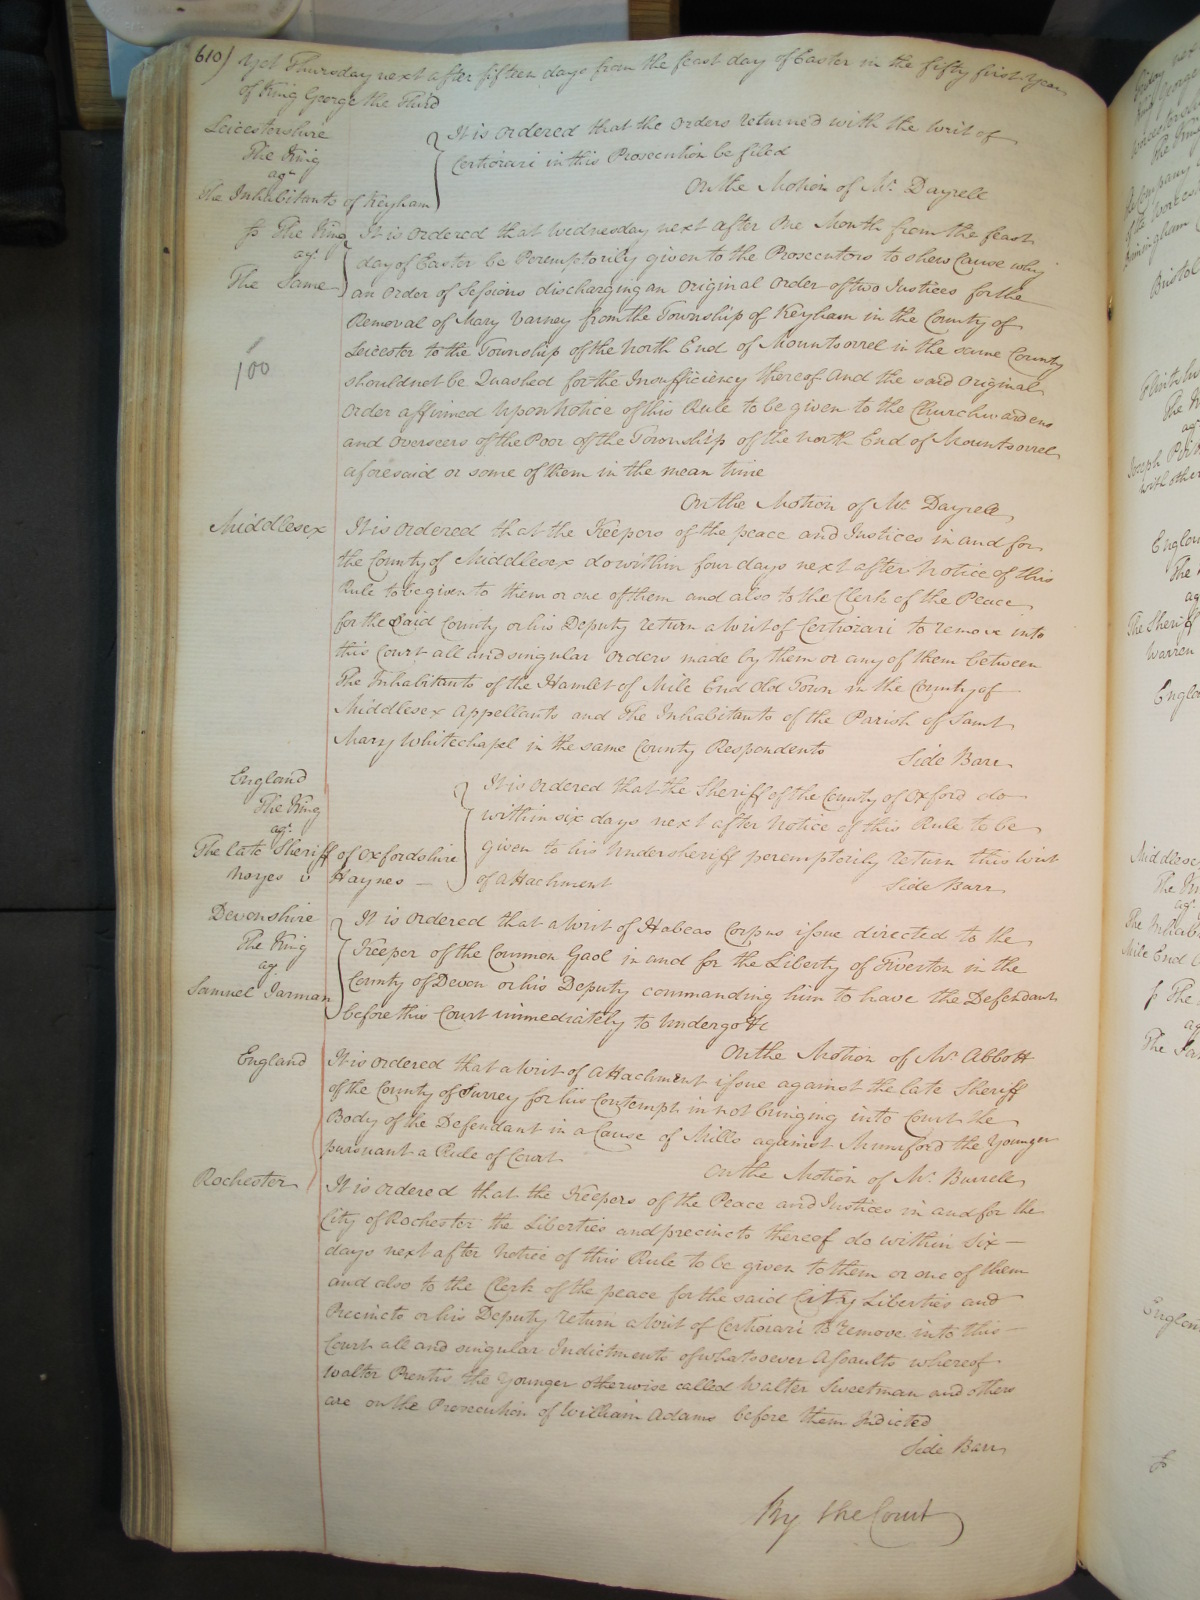 610) Yet Thursday next after fifteen days from the feast day of Easter in the fifty first Year
of King George the Third
Leicestershire
The King
agt
The Inhabitants of Keyham
It is ordered that the orders returned with the writ of
Certiorari in this Prosecution be filed
On the Motion of Mr Dayrell
The King
agt
The Same
100
It is ordered that Wednesday next after One Month from the feast
day of Easter be Peremptorily given to the Prosecutors to shew Cause why
an order of Sessions discharging an Original Order of two Justices for the
Removal of Mary Varney from the Township of Keyham in the County of
Leicester to the Township of the North End of Mountsorrel in the same County
should not be Quashed for the Insufficiency thereof And the said Original
Order affirmed Upon Notice of this Rule to be given to the Churchwardens
and Overseers of the Poor of the Township of the North End of Mountsorrel
aforesaid or some of them in the mean time
On the Motion of Mr Dayrell
Middlesex
It is ordered that the Keepers of the peace and Justices in and for
the County of Middlesex do within four days next after Notice of this
Rule to be given to them or one of them and also to the Clerk of the Peace
for the Said County or his Deputy return a Writ of Certiorari to remove into
this Court all and singular orders made by them or any of them between
The Inhabitants of the Hamlet of Mile End Old Town in the County of
Middlesex Appellants and The Inhabitants of the Parish of Saint
Mary Whitechapel in the same County Respondents
Side Barr
England
The King
agt
The late Sheriff of Oxfordshire
Noyes v Haynes
It is ordered that the Sheriff of the County of Oxford do
within six days next after Notice of this Rule to be
given to his Undersheriff peremptorily return this Writ
of Attachment
Side Barr
Devonshire
The King
agt
Samuel Jarman
It is ordered that a Writ of Habeas Corpus issue directed to the
Keeper of the Common Gaol in and for the Liberty of Tiverton in the
County of Devon or his Deputy commanding him to have the Defendant
before this Court immediately to Undergo &c
On the Motion of Mr Abbott
England
It is ordered that a Writ of Attachment issue against the late Sheriff
of the County of Surrey for his Contempt in not bringing into Court the
Body of the Defendant in a Cause of Mills against Mumford the Younger
pursuant a Rule of Court
On the Motion of Mr Burrell
Rochester
It is ordered that the Keepers of the Peace and Justices in and for the
City of Rochester the Liberties and precincts thereof do within six
days next after Notice of this Rule to be given to them or one of them
and also to the Clerk of the peace for the said City Liberties and
Precincts or his Deputy return a Writ of Certiorari to remove into this
Court all and singular Indictments of whatsoever Assaults whereof
Walter Prentis the Younger otherwise called Walter Sweetman and others
are on the Prosecution of William Adams before them Indicted
Side Barr
By the Court
Bristol
The Sheriff
Warren
Middlesex
Mile End